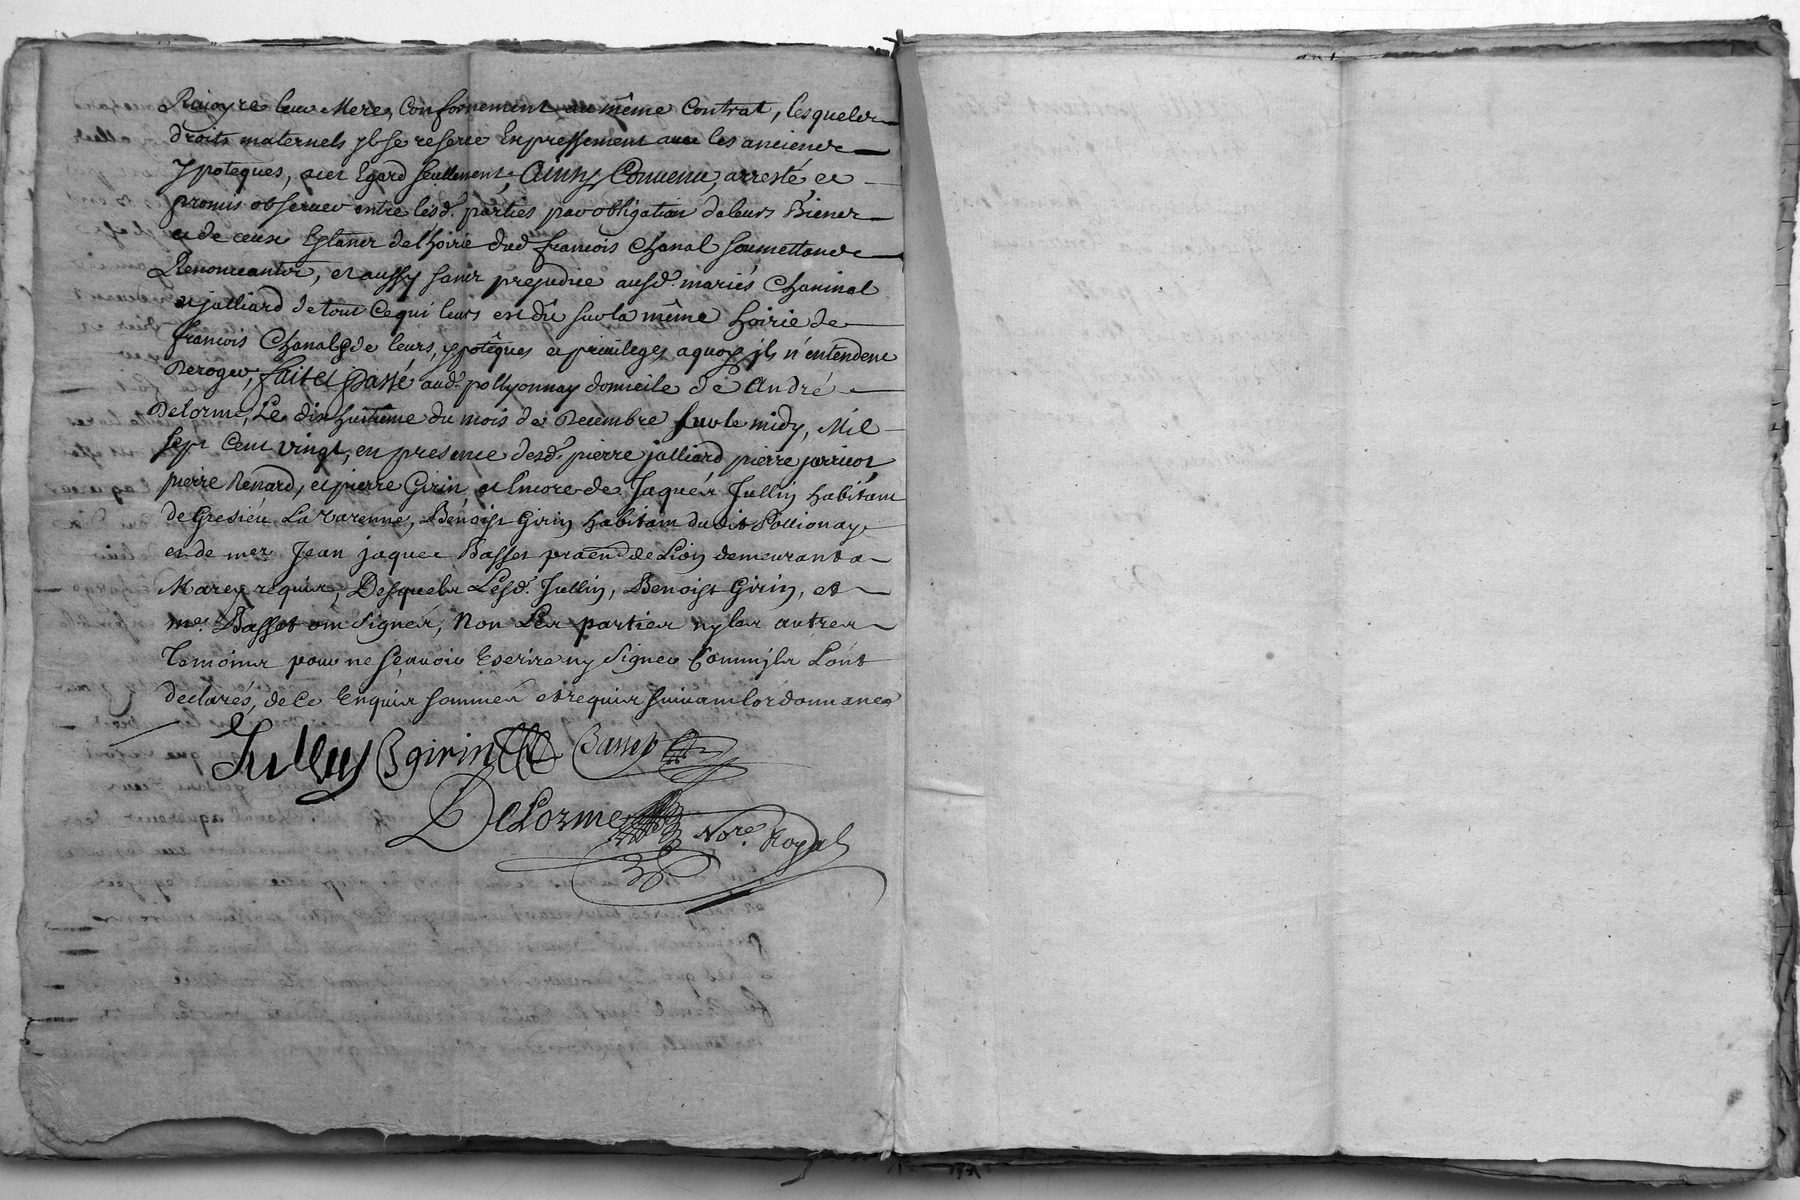 leur Mere, Conformement au même Contrat, lesquels
droits maternels ylz se reserve Expressement avec les anciens
Ypoteques, a cet Egard seullement, Ainsy Convenu, arresté et
promis observer entre lesd. parties par obligation de leurs Biens
et de ceux Estans de l'hoirie dud françois Chanal soumettans
Renonceantz, et aussy sans prejudice ausd. mariés Chaninal
et jalliard de tout Ce qui leurs est dû sur la même hoirie de
françois Chanal de leurs ypotêques et privileges a quoy ils n'entendent
Deroger, fait et Passé aud. pollyonnay domicile de André
Delorme, Le dix huitième du mois de Decembre sur le midy, Mil
sept Cent vingt, en presence desd. pierre jalliard pierre jarricot
pierre Renard, et pierre Girin et Encore de Jaques Jullin habitant
de Gresieu La Varenne, Benoist Girin habitant dudit Pollionay
et de mer. Jean jaques Basset de Lion demeurant a
Marcy requis, Desquels Lesd. Jullin, Benoist Girin, et
mer. Basset ont signés, Non Les parties ny les autres
Temoins pour ne sçavoir Escrire ny signer Comm'ils L'ont
declarés, de ce Enquis sommés et requis suivant l'ordonnance
Jullin B girin Basset
DeLorme Nore. Royal